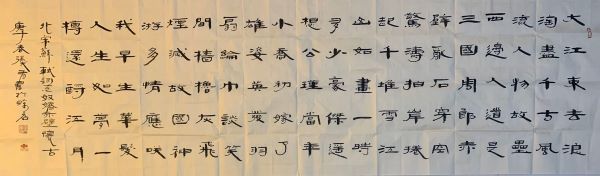 大江東去浪
淘盡千古風
流人物故壘
西邊人道是
三國周郎赤
壁亂石穿空
驚濤拍岸捲
起千堆雪江
山如畫一時
多少豪傑遙
想公瑾當年
小喬初嫁了
雄姿英發羽
扇綸巾談笑
間檣櫓灰飛
煙滅故國神
游多情應笑
我早生華髮
人生如夢一
樽還酹江月
北宋蘇軾詞念奴嬌赤壁懷古